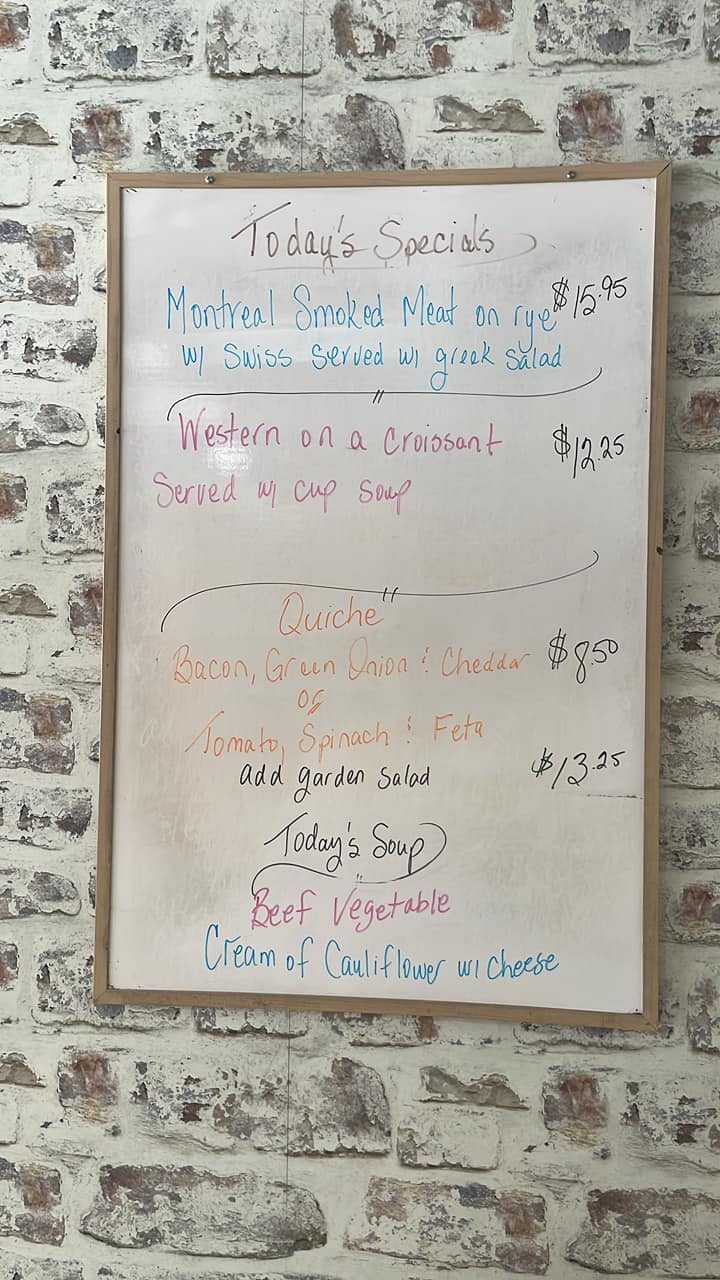 Today's Specials
Montreal Smoked Meat on rye $15.95
w/ Swiss Served w/ greek Salad
Western on a Croissant $12.25
Served w/ cup soup
Quiche
Bacon, Green Onion & Cheddar $8.50
or
Tomato, Spinach & Feta
add garden Salad $13.25
Today's Soup
Beef Vegetable
Cream of Cauliflower w/ Cheese